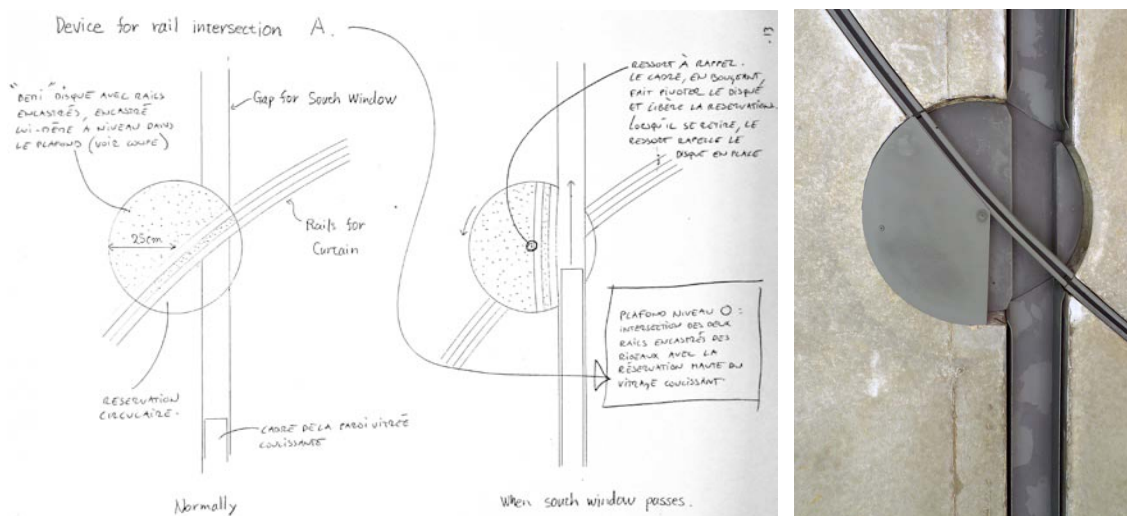 Device for rail intersection A.
"DEMI" DISQUE AVEC RAILS
ENCASTRÉS, ENCASTRÉ
LUI-MÊME A NIVEAU DANS
LE PLAFOND (VOIR COUPE)
Gap for South Window
25cm
Rails for
Curtain
RESERVATION
CIRCULAIRE.
CADRE DE LA PAROI VITRÉE
COULISSANTE
Normally
RESSORT À RAPPEL.
LE CADRE, EN BOUGEANT,
FAIT PIVOTER LE DISQUE
ET LIBÈRE LA RESERVATION.
LORSQU'IL SE RETIRE, LE
RESSORT RAPPELLE LE
DISQUE EN PLACE
PLAFOND NIVEAU O :
INTERSECTION DES DEUX
RAILS ENCASTRÉS DES
RIDEAUX AVEC LA
RÉSERVATION HAUTE DU
VITRAGE COULISSANT
When south window passes.